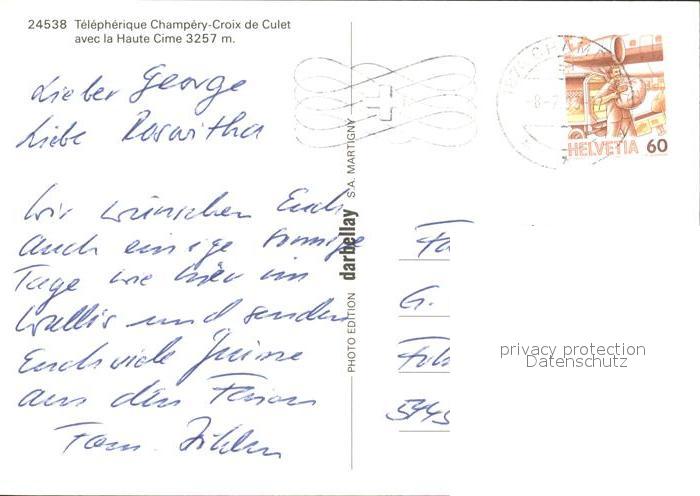 24538 Téléphérique Champéry-Croix de Culet
avec la Haute Cime 3257 m.
Lieber George
Liebe Roswitha
Wir wünschen Euch
auch einige sonnige
Tage wie hier im
Wallis und senden
Euch viele Grüsse
aus den Ferien
Fam.
PHOTO EDITION darbellay S.A. MARTIGNY
HELVETIA 60
Fa
G.
5443
privacy protection
Datenschutz